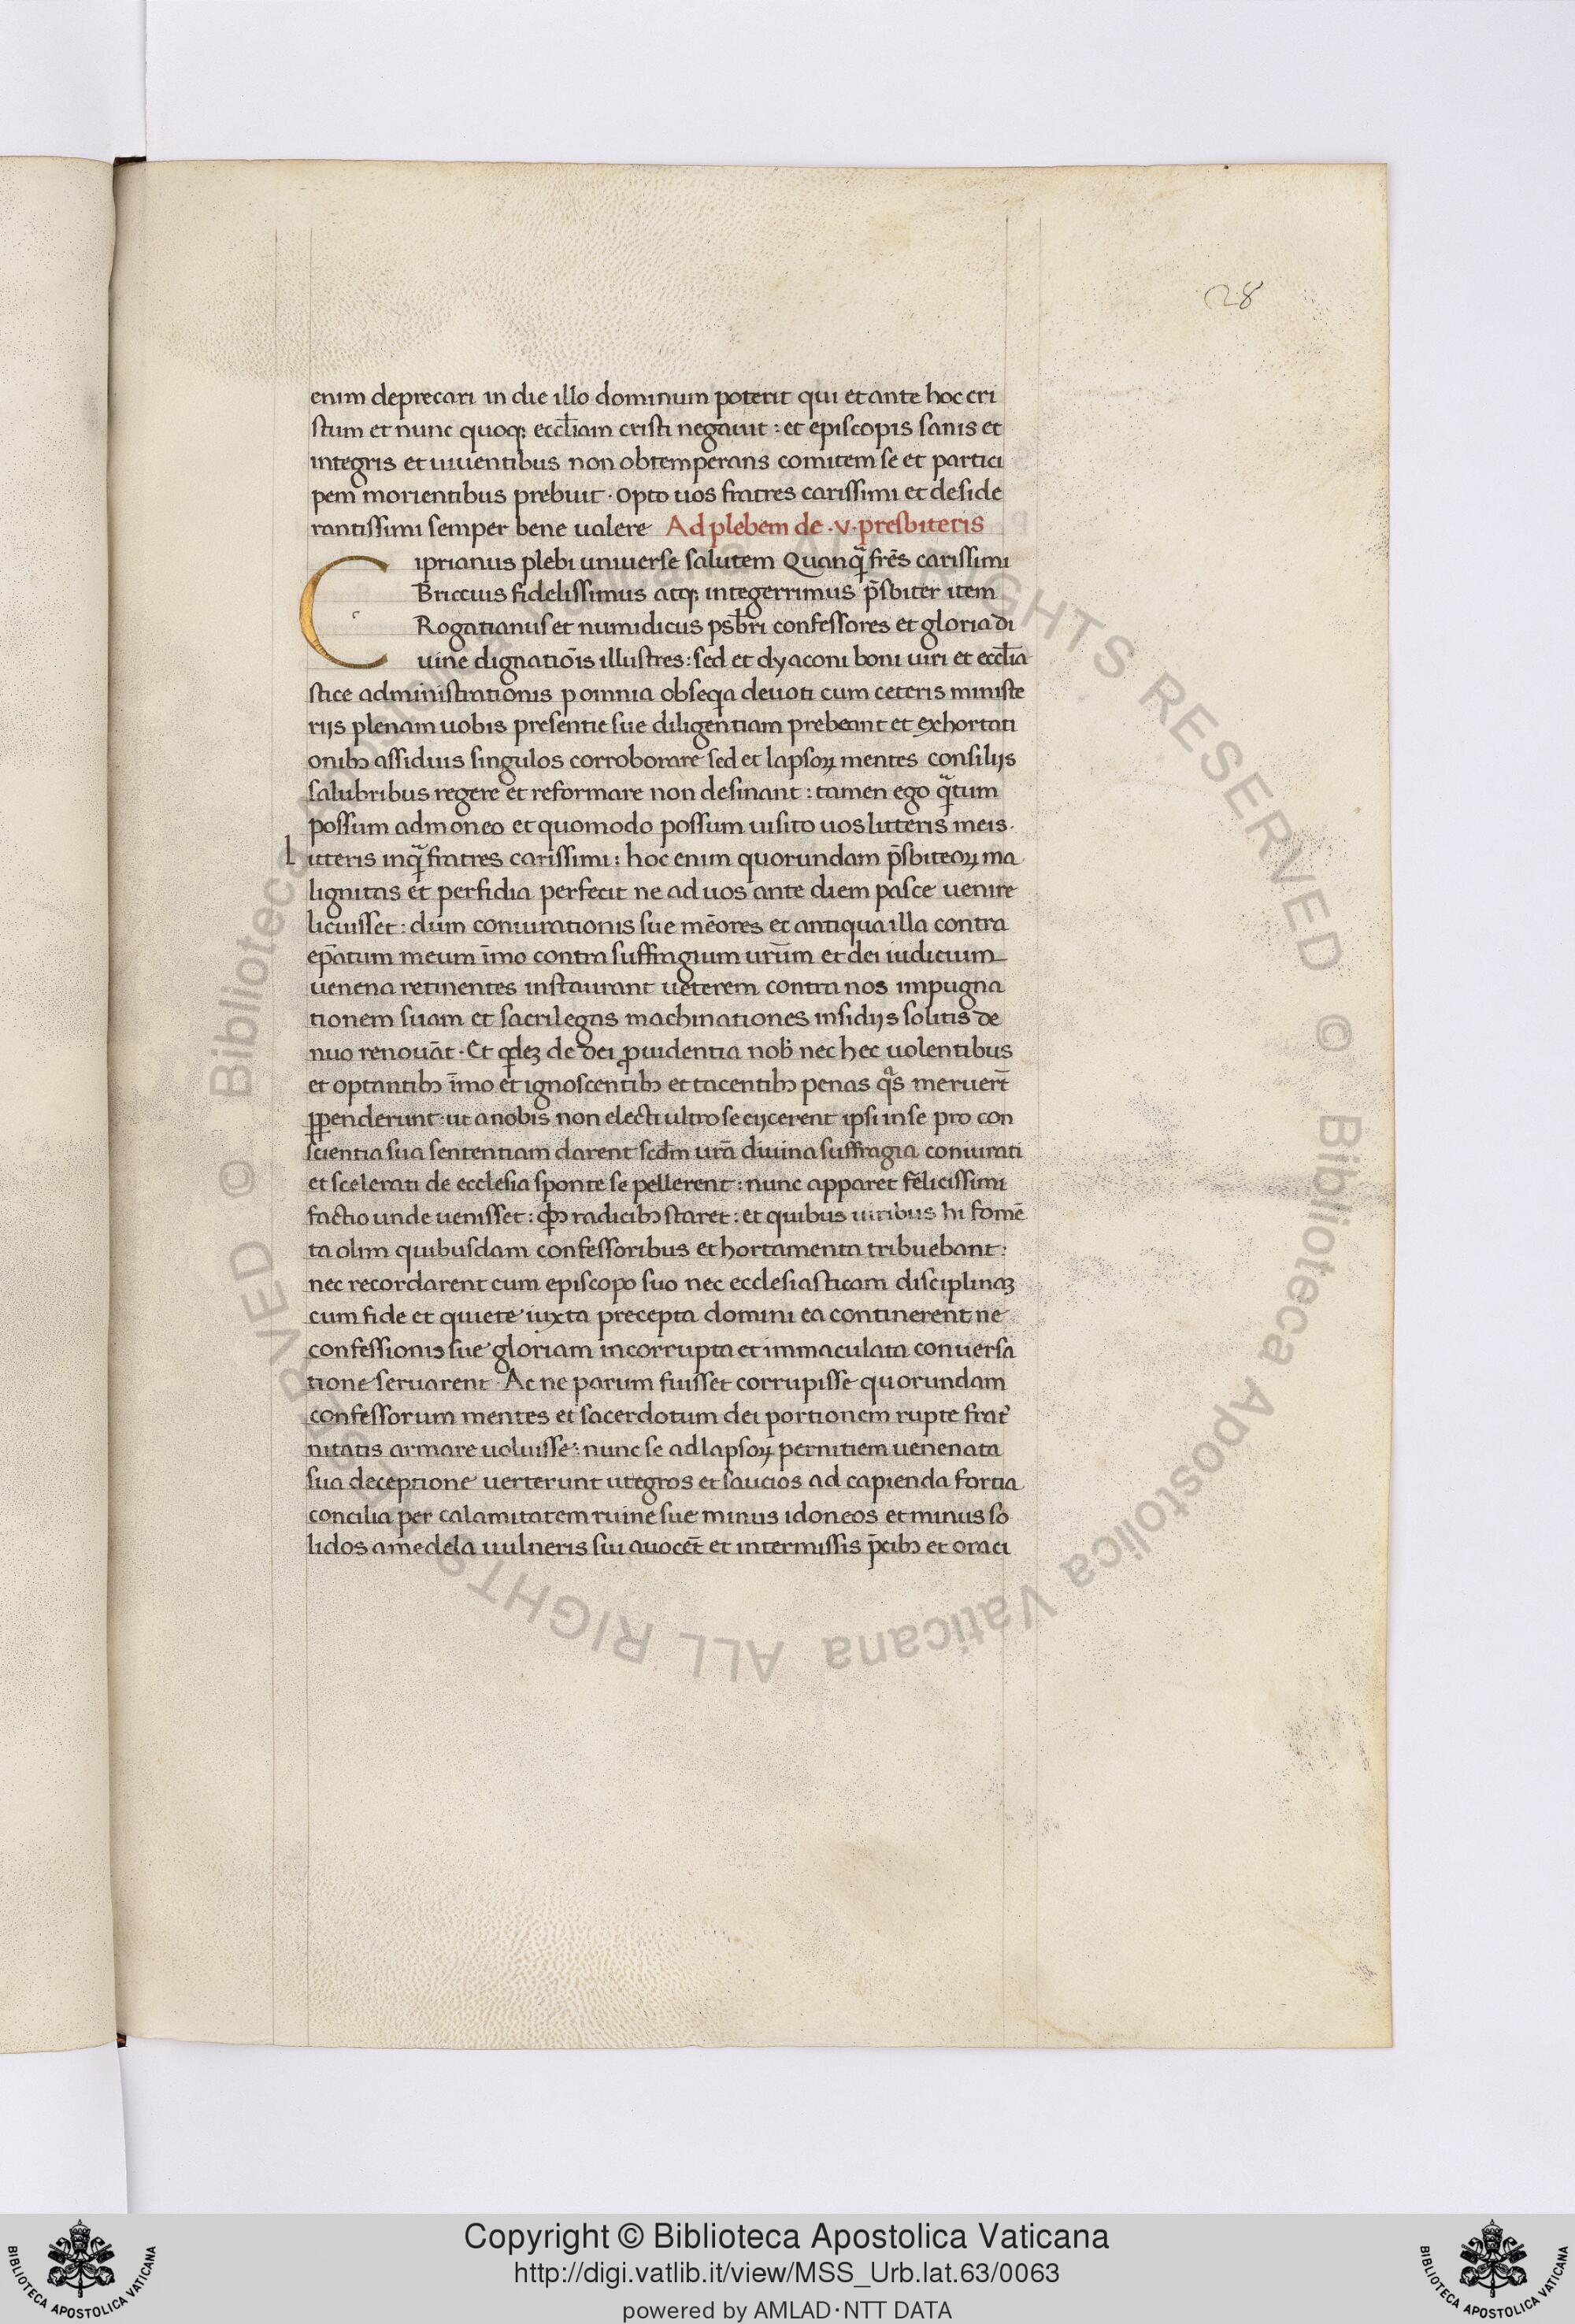 28
enim deprecari in die illo dominum poterit qui et ante hoc cri
stum et nunc quoqꝫ eccl̄iam cristi negauit : et episcopis sanis et
integris et uiuentibus non obtemperans comitem se et partici
pem morientibus prebuit · opto uos fratres carissimi et deside
rantissimi semper bene ualere Ad plebem de ·v· presbiteris
Ciprianus plebi uniuerse salutem Quanqᷓ frēs carissimi
Briccius fidelissimus atqꝫ integerrimus p̄sbiter item
Rogatianus et numidicus psb̄ri confessores et gloria di
uine dignatiōis illustres : sed et dyaconi boni uiri et eccl̄ia
stice administrationis p omnia obseqa deuoti cum ceteris ministe
rijs plenam uobis presentie sue diligentiam prebeant et exhortati
onibꝫ assiduis singulos corroborare sed et lapsoꝝ mentes consilijs
salubribus regere et reformare non desinant : tamen ego qᷓtum
possum admoneo et quomodo possum uisito uos litteris meis ·
Litteris inqᷓ fratres carissimi : hoc enim quorundam p̄sbiteoꝝ ma
lignitas et perfidia perfecit ne ad uos ante diem pasce uenire
licuisset : dum coniurationis sue mēores et antiqua illa contra
ep̄atum meum īmo contra suffragium ur̄um et dei iudicium
uenena retinentes instaurant ueterem contra nos impugna
tionem suam et sacrilegas machinationes insidijs solitis de
nuo renouāt · Et qdeꝫ de dei ꝓuidentia nob̄ nec hec uolentibus
et optantibꝫ īmo et ignoscentibꝫ et tacentibꝫ penas qᷓs meruer̄t
ꝑpenderunt · ut a nobis non electi ultro se eijcerent ipsi in se pro con
scientia sua sententiam darent scdm urā diuina suffragia coniurati
et scelerati de ecclesia sponte se pellerent : nunc apparet felicissimi
factio unde uenisset : radicibꝫ staret : et quibus uiribus hi fomē
ta olim quibusdam confessoribus et hortamenta tribuebant :
nec recordarent cum episcopo suo nec ecclesiasticam disciplinaꝫ
cum fide et quiete iuxta precepta domini ea continerent ne
confessionis sue gloriam incorrupta et immaculata conuersa
tione seruarent · Ac ne parum fuisset corrupisse quorundam
confessorum mentes et sacerdotum dei portionem rupte frat̄
nitatis armare uoluisse : nunc se ad lapsoꝝ pernitiem uenenata
sua deceptione uerterunt utegros et saucios ad capienda fortia
concilia per calamitatem ruine sue minus idoneos et minus so
lidos a medela uulneris sui auocēt et intermissis p̄cibꝫ et oraci
Copyright © Biblioteca Apostolica Vaticana
http://digi.vatlib.it/view/MSS_Urb.lat.63/0063
powered by AMLAD·NTT DATA
BIBLIOTECA APOSTOLICA VATICANA
BIBLIOTECA APOSTOLICA VATICANA
© Biblioteca Apostolica Vaticana ALL RIGHTS RESERVED © Biblioteca Apostolica Vaticana ALL RIGHTS RESERVED